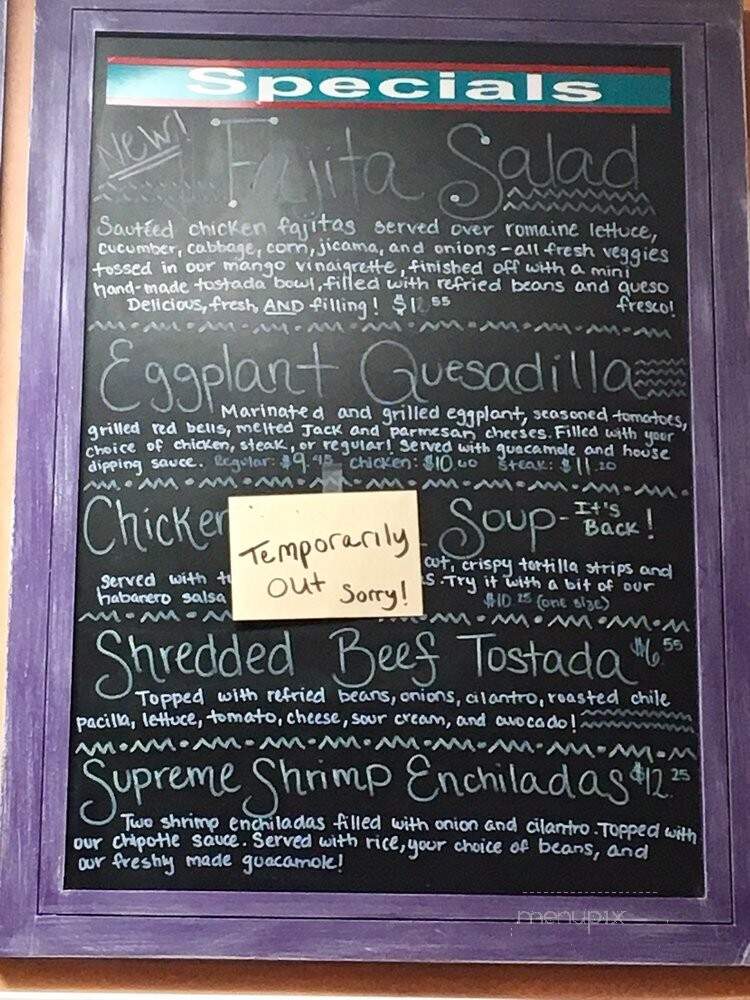 Specials
New!
Fajita Salad
Sautéed chicken fajitas served over romaine lettuce,
cucumber, cabbage, corn, jicama, and onions - all fresh veggies
tossed in our mango vinaigrette, finished off with a mini
hand-made tostada bowl, filled with refried beans and queso
Delicious, fresh, AND filling! 55 fresco!
Eggplant Quesadilla
Marinated and grilled eggplant, seasoned tomatoes,
grilled red bells, melted Jack and parmesan cheeses. Filled with your
choice of chicken, steak, or regular! Served with guacamole and house
dipping sauce. Regular: $9.45 chicken: $10.60 steak: $11.20
Chicken Soup - It's
Back!
Temporarily
Out Sorry!
crispy tortilla strips and
served with Try it with a bit of our
habanero salsa $10.25 (one size)
Shredded Beef Tostada $6.55
Topped with refried beans, onions, cilantro, roasted chile
pacilla, lettuce, tomato, cheese, sour cream, and avocado!
Supreme Shrimp Enchiladas $12.25
Two shrimp enchiladas filled with onion and cilantro. Topped with
our chipotle sauce. Served with rice, your choice of beans, and
our freshly made guacamole!
menupix